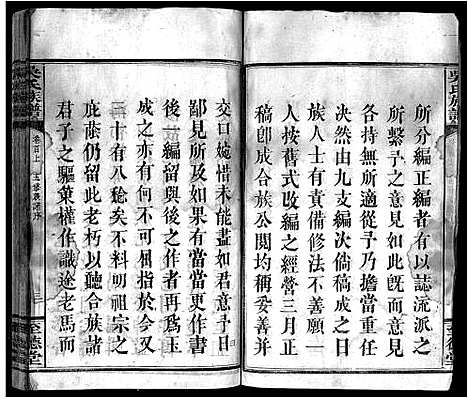 吳氏族譜
所分編正編者有以誌流派之
所繫予之內兄
所適從予乃擬查
然由九支編次倘稿成之日
族人士有責備修法不善願一
人按舊式編之經營三月正
稿卽成合族公閱均稱妥善兼
交口婉惜未能盡如君意予曰
鄙見所及如果有當何再作書
後一編留與後之作者再爲玉
成之未爲不可屈指於今又
三十有八稔矣不料明祖宗之
庇蔭仍留此老朽以聽合族諸
君子之驅策權作識途老馬而
吳氏族譜
卷首上
五修
序
三
至德堂